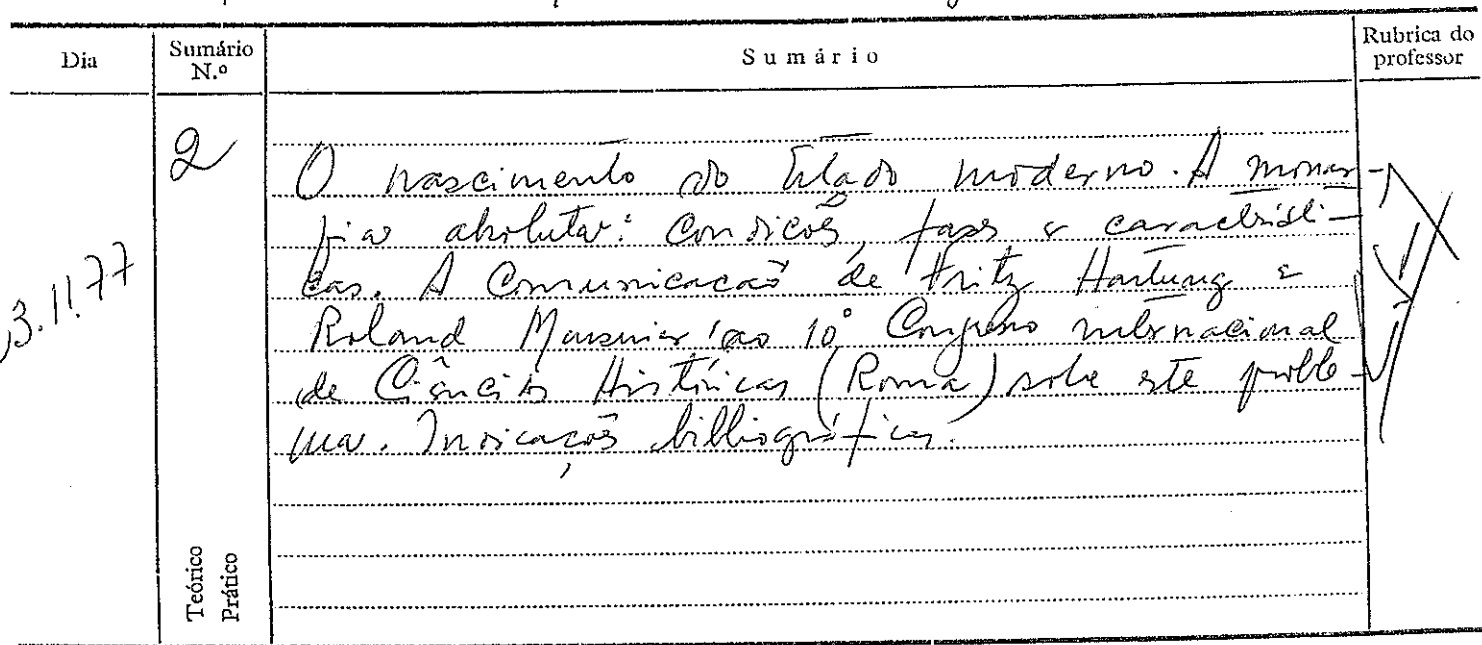 Dia
Sumário N.º
Sumário
Rubrica do professor
3.11.77
2
O nascimento do Estado moderno. A monar-
quia absoluta: Condições, fases e característi-
cas. A Comunicação de Fritz Hartung e
Roland Mousnier ao 10º Congresso internacional
de Ciências Históricas (Roma) sobre este proble-
ma. Indicações bibliográficas.
Teórico
Prático